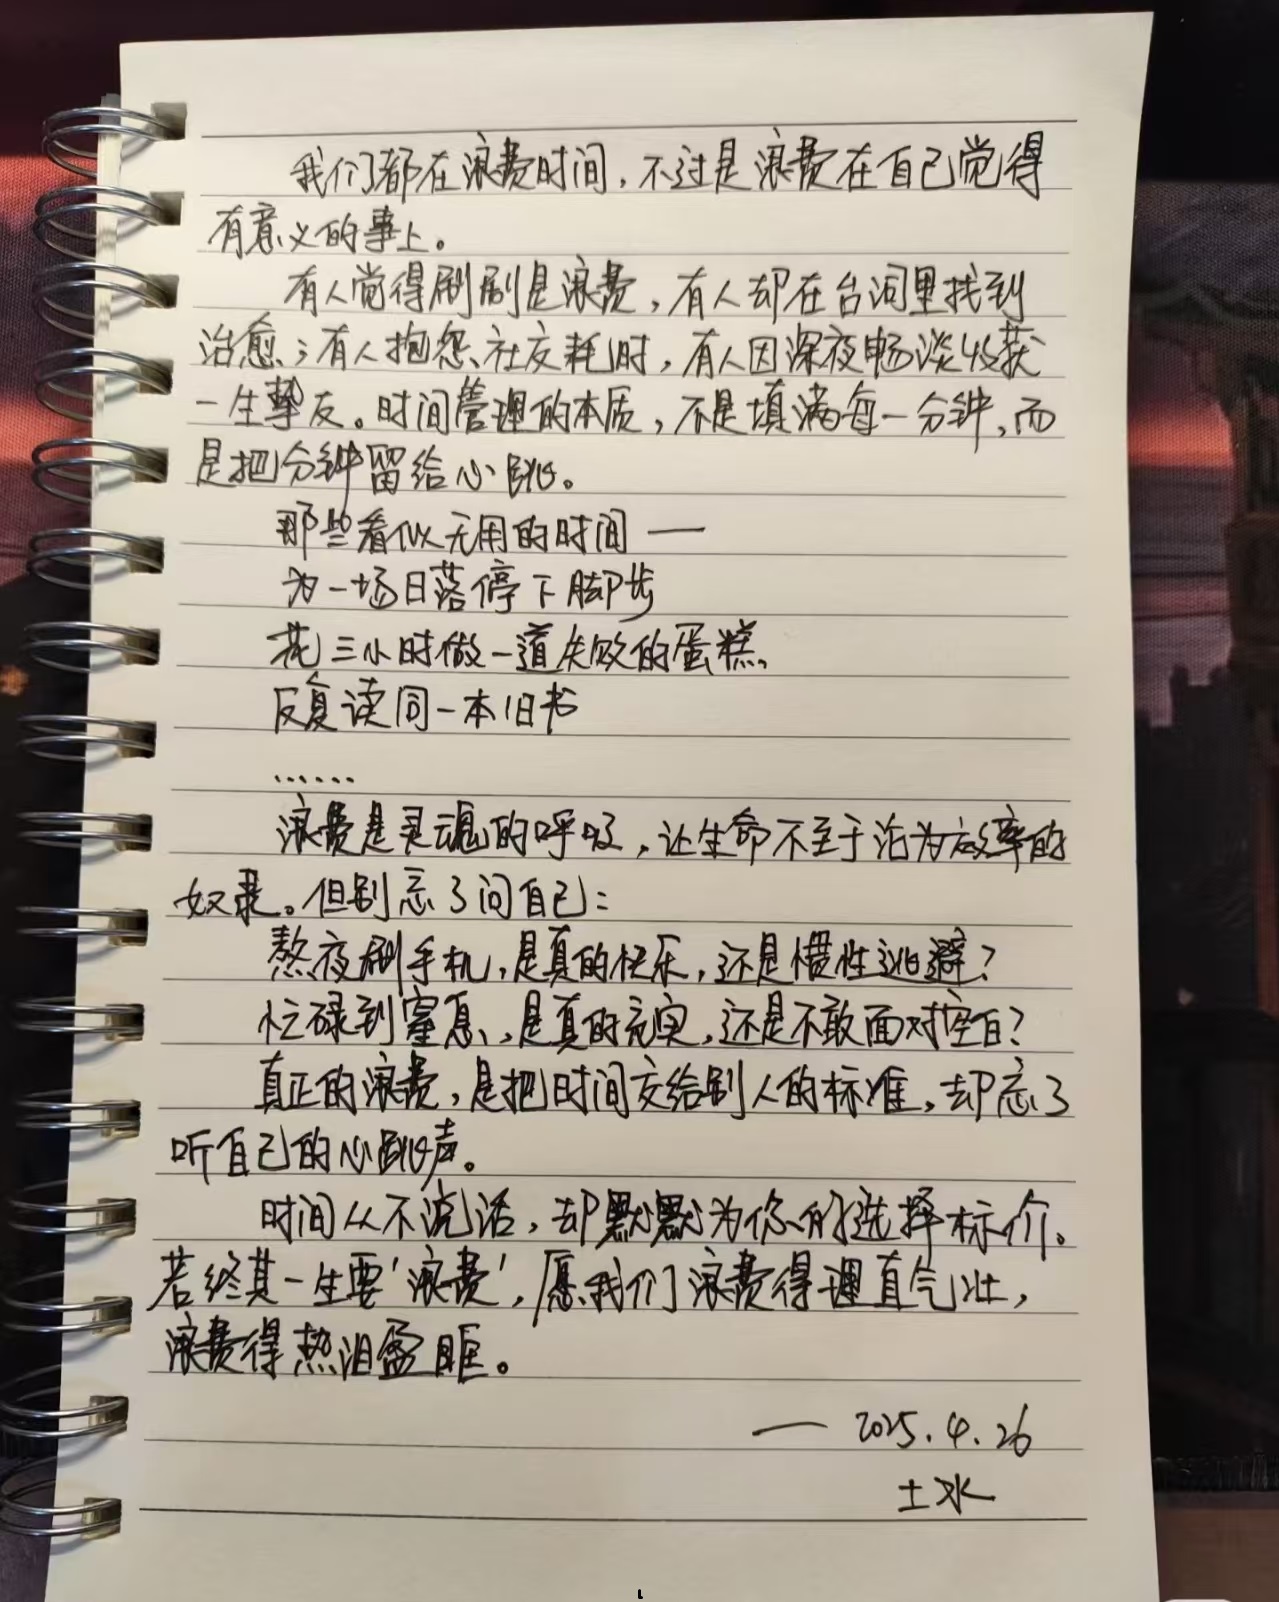 我们都在浪费时间，不过是浪费在自己觉得
有意义的事上。
有人觉得刷剧是浪费，有人却在台词里找到
治愈；有人抱怨社交耗时，有人因深夜畅谈收获
一生挚友。时间管理的本质，不是填满每一分钟，而
是把分钟留给心跳。
那些看似无用的时间——
为一场日落停下脚步
花三小时做一道失败的蛋糕、
反复读同一本旧书
……
浪费是灵魂的呼吸，让生命不至于沦为效率的
奴隶。但别忘了问自己：
熬夜刷手机，是真的快乐，还是惯性逃避？
忙碌到窒息，是真的充实，还是不敢面对空白？
真正的浪费，是把时间交给别人的标准，却忘了
听自己的心跳声。
时间从不说话，却默默为你的选择标价。
若终其一生要'浪费'，愿我们浪费得理直气壮，
浪费得热泪盈眶。
—— 2025.4.26
土水